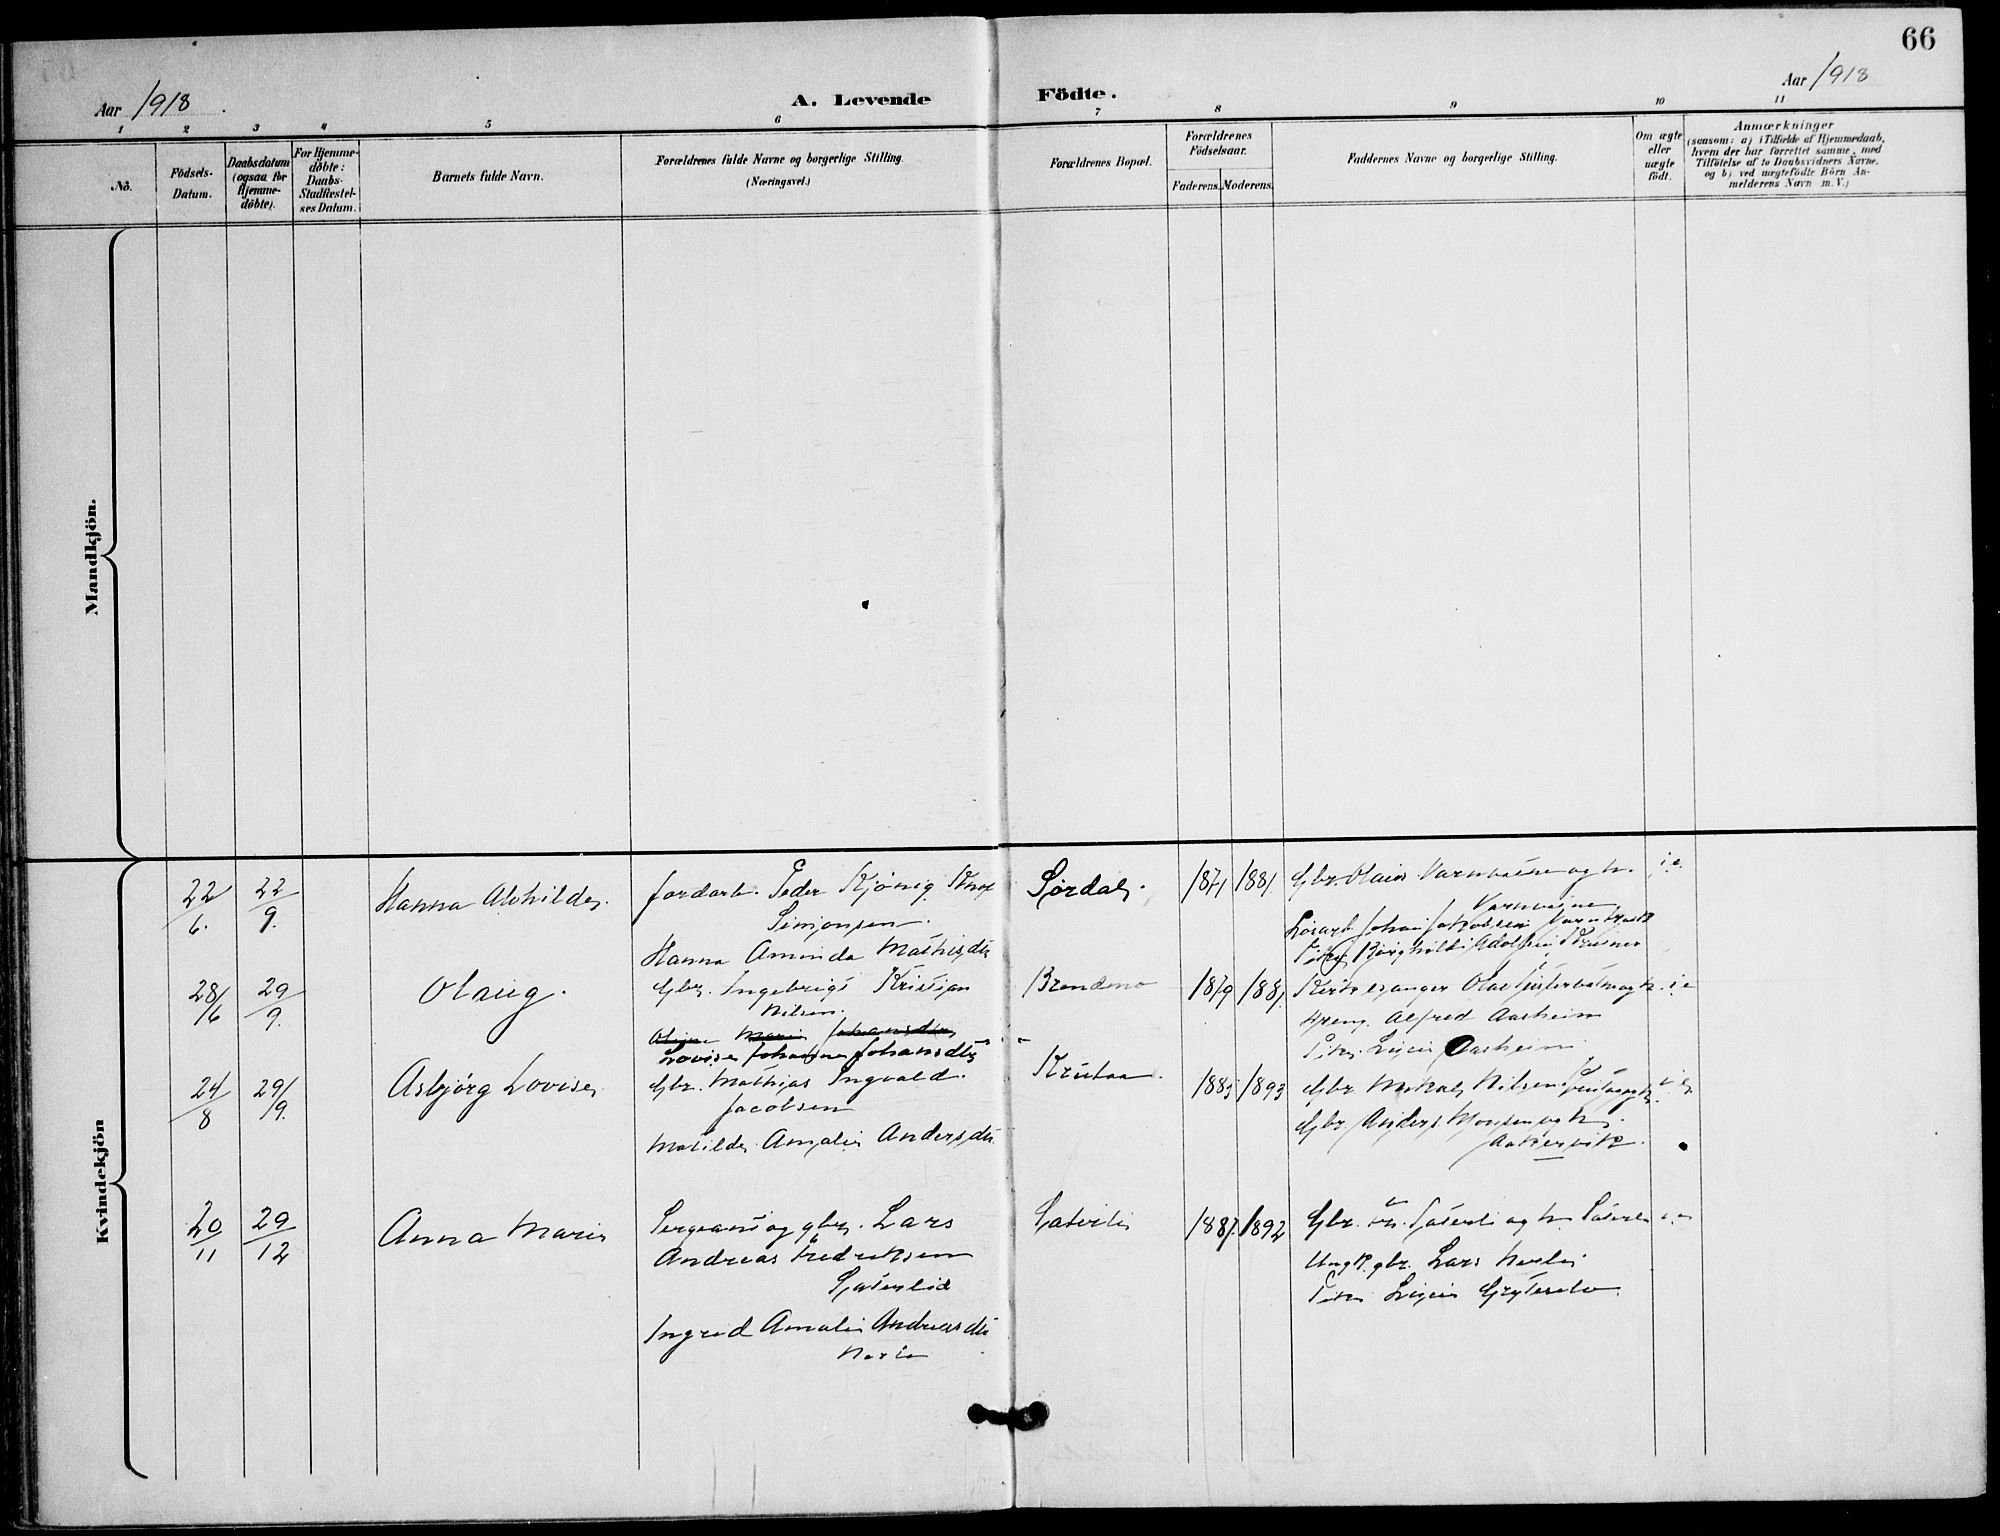 66
Aar 1918.
A. Levende Födte.
Aar 1918
1 2 3 4 5 6 7 8 9 10 11
No.
Födsels-
Datum.
Daabsdatum
(ogsaa for
Hjemme-
döbte).
For Hjemme-
döbte:
Daabs-
Stadfæstel-
ses Datum.
Barnets fulde Navn.
Forældrenes fulde Navne og borgerlige Stilling.
(Næringsvei.)
Forældrenes Bopæl.
Forældrenes
Födselsaar.
Faderens. Moderens.
Faddernes Navne og borgerlige Stilling.
Om ægte
eller
uægte
födt.
Anmærkninger
(saasom: a) i Tilfælde af Hjemmedaab,
hvem der har forrettet samme, med
Tilföielse af to Daabsvidners Navne.
og b) ved uægtefödte Börn An-
melderens Navn m. V.)
Mandkjön.
Kvindekjön
22/6. 22/9.
Hanna Alvhilde.
jordarb. Peder Kjönig
Simonsen.
Hanna Aminda Mathisdtr
Sørdal.
1871 1881
Gbr. Olaus og h.
Johan Jakobsen
i.e.
28/6 29/9.
Olaug.
Gbr. Ingebrigt Kristian
Nilsen.
Oline Marie Johansdtr
Lovise Johanna Johansdtr
Brendmo
1879 1881
Kirkesanger Olaf
Alfred Aasheim
Pike Aasheim
i.e
24/8 29/9.
Asbjörg Lovise
Gbr. Mathias Ingvald.
Jacobsen
Matilde Amalie Andersdtr
Krutaa.
1885 1893
Gbr. Mikal Nilsen
Gbr. Anders Monsen og h.
Aakervik.
20/11 29/12
Anna Marie
Sergeant og gbr. Lars
Andreas Fredriksen
Sæterlid
Ingrid Amalie Andreasdtr
Sæterli
1887. 1892
Gbr. Fr. Sæterli og h. Sæterli
Ungk. gbr. Lars
Pike